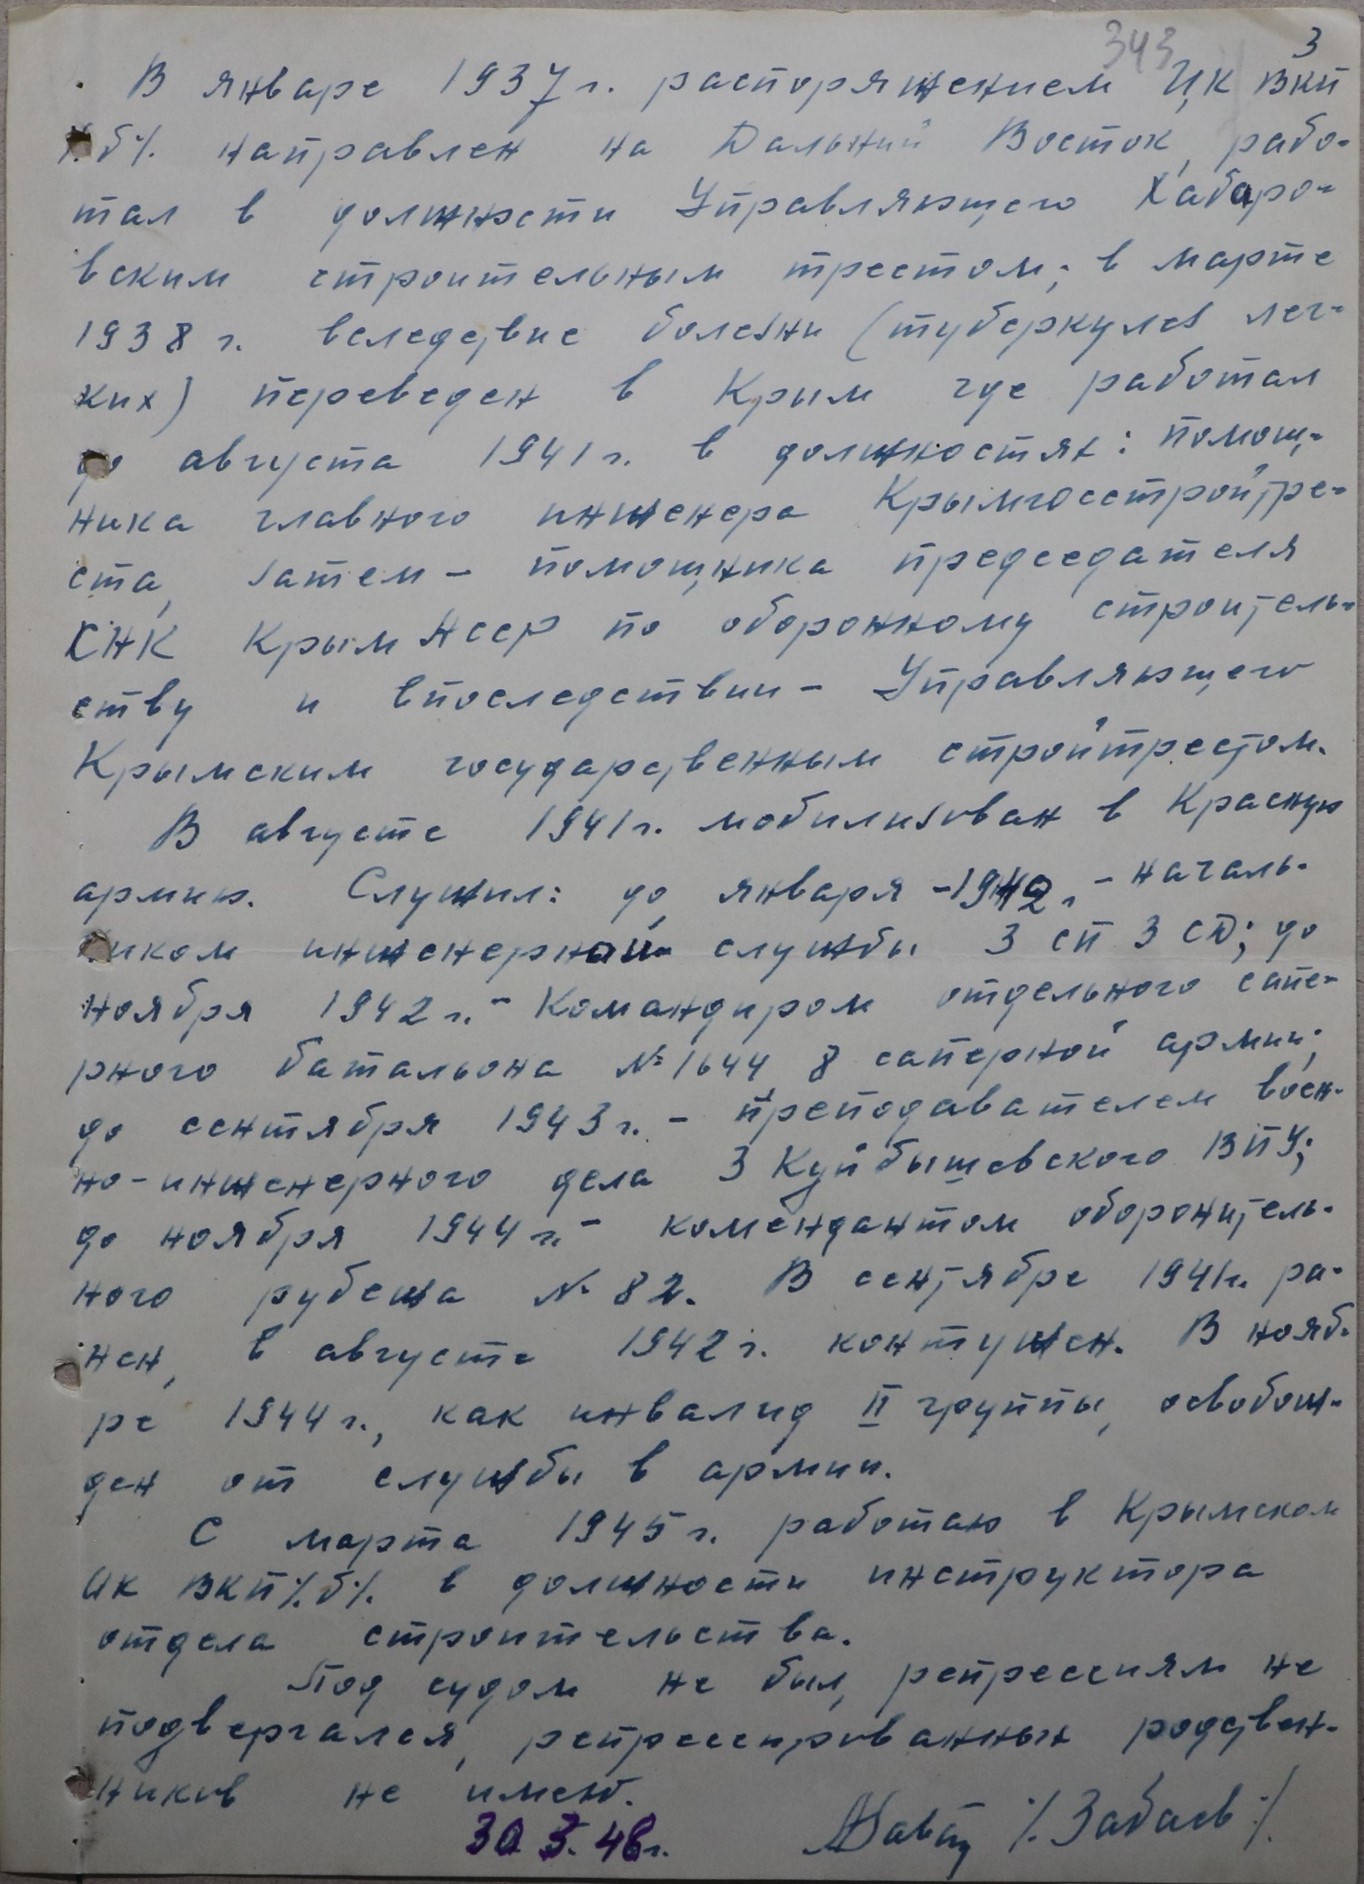 343 3
В январе 1937 г. распоряжением ЦК ВКП
/.б/. направлен на Дальний Восток, рабо-
тал в должности Управляющего Хабаро-
вским строительным трестом; в марте
1938 г. вследствие болезни (туберкулез лег-
ких) переведен в Крым где работал
до августа 1941 г. в должностях: помощ-
ника главного инженера Крымгосстройтре-
ста, затем – помощника председателя
СНК Крым АССР по оборонному строитель-
ству и впоследствии – Управляющего
Крымским государственным стройтрестом.
В августе 1941 г. мобилизован в Красную
армию. Служил: до января – 1942 г. – началь-
ником инженерной службы 3 сп 3 СД; до
ноября 1942 г. – Командиром отдельного сапе-
рного батальона № 1644 8 саперной армии;
до сентября 1943 г. – преподавателем воен-
но-инженерного дела 3 Куйбышевского ВПУ;
до ноября 1944 г. – комендантом оборонитель-
ного рубежа № 82. В сентябре 1941 г. ра-
нен, в августе 1942 г. контужен. В нояб-
ре 1944 г., как инвалид II группы, освобож-
ден от службы в армии.
С марта 1945 г. работаю в Крымском
ОК ВКП/.б/. в должности инструктора
отдела строительства.
Под судом не был, репрессиям не
подвергался, репрессированных родствен-
ников не имею.
30 3. 46 г. /.Забаев/.